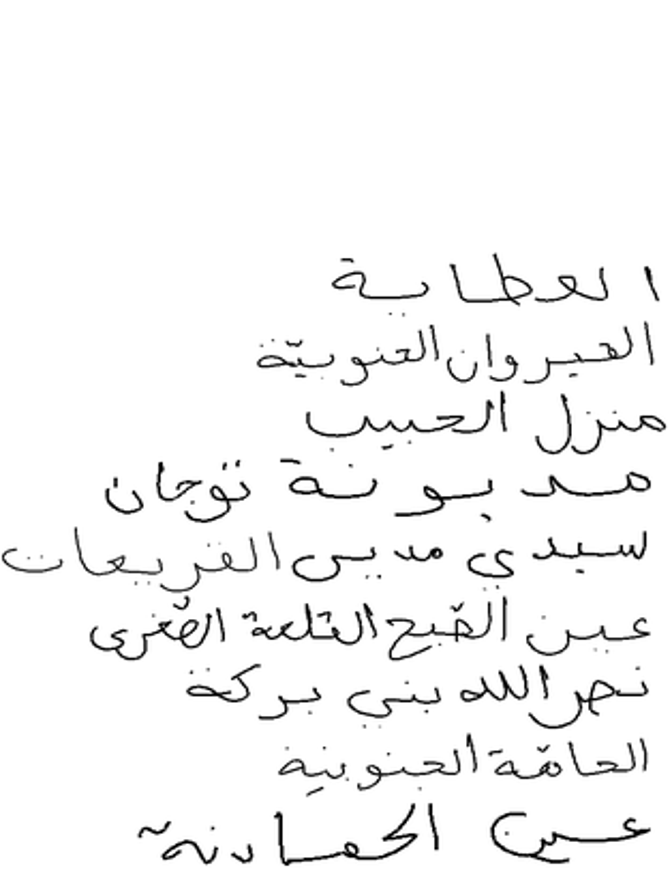 العطاية
القيروان الجنوبيّة
منزل الحبيب
مديونة توجان
سيدي مدين القريعات
عين الضبع القلعة الصّغرى
نصر الله بني بركة
الحامّة الجنوبية
عين الحمادنة